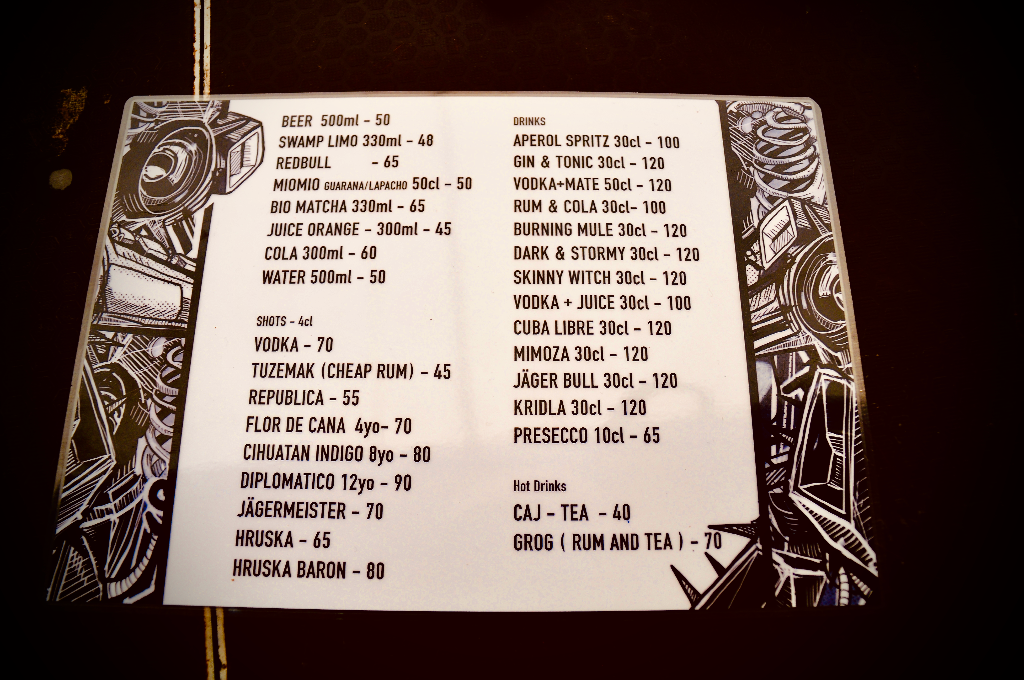 BEER 500ml - 50
SWAMP LIMO 330ml - 48
REDBULL - 65
MIOMIO GUARANA/LAPACHO 50cl - 50
BIO MATCHA 330ml - 65
JUICE ORANGE - 300ml - 45
COLA 300ml - 60
WATER 500ml - 50
SHOTS - 4cl
VODKA - 70
TUZEMAK (CHEAP RUM) - 45
REPUBLICA - 55
FLOR DE CANA 4yo- 70
CIHUATAN INDIGO 8yo - 80
DIPLOMATICO 12yo - 90
JÄGERMEISTER - 70
HRUSKA - 65
HRUSKA BARON - 80
DRINKS
APEROL SPRITZ 30cl - 100
GIN & TONIC 30cl - 120
VODKA+MATE 50cl - 120
RUM & COLA 30cl- 100
BURNING MULE 30cl - 120
DARK & STORMY 30cl - 120
SKINNY WITCH 30cl - 120
VODKA + JUICE 30cl - 100
CUBA LIBRE 30cl - 120
MIMOZA 30cl - 120
JÄGER BULL 30cl - 120
KRIDLA 30cl - 120
PRESECCO 10cl - 65
Hot Drinks
CAJ - TEA - 40
GROG ( RUM AND TEA ) - 70